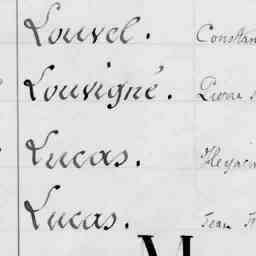 Louvel. Constan
Louvigné. Pierre
Lucas. Hyacin
Lucas. Jean
M